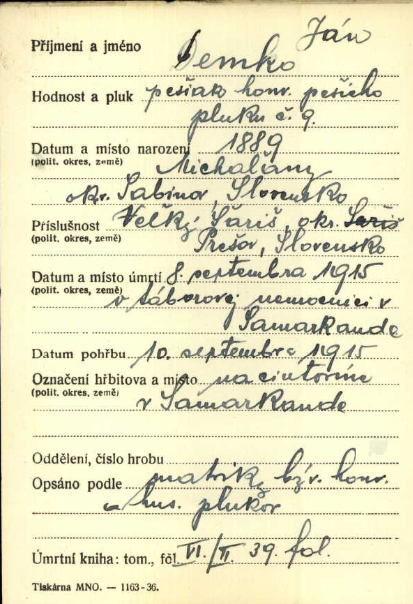 Ján
Příjmení a jméno Demko
Hodnost a pluk pešiak honv. pešieho
pluku č. 9.
Datum a místo narození 1889
(polit. okres, země) Michaľany
okr. Sabinov, Slovensko
Příslušnost Velký Šariš, okr. Šariš
(polit. okres, země) Prešov, Slovensko
Datum a místo úmrtí 8. septembra 1915
(polit. okres, země) v táborovej nemocnici v
Samarkande
Datum pohřbu 10. septembra 1915
Označení hřbitova a místo na cintoríne
(polit. okres, země) v Samarkande
Oddělení, číslo hrobu
Opsáno podle matriky býv. honv.
hus. plukov
Úmrtní kniha: tom., fol. VI./II. 39. fol.
Tiskárna MNO. — 1163-36.